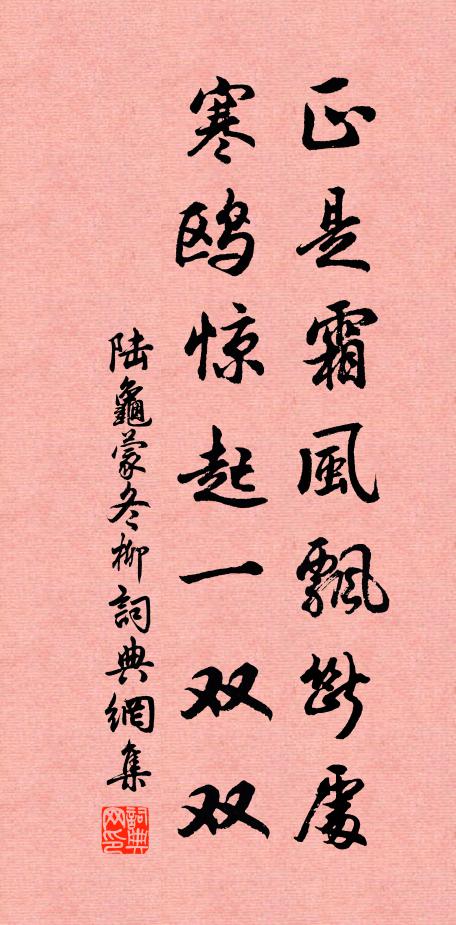 正是霜風飄斷處
寒鸥惊起一双双
陆龜蒙冬柳詞典網集
詞典网印